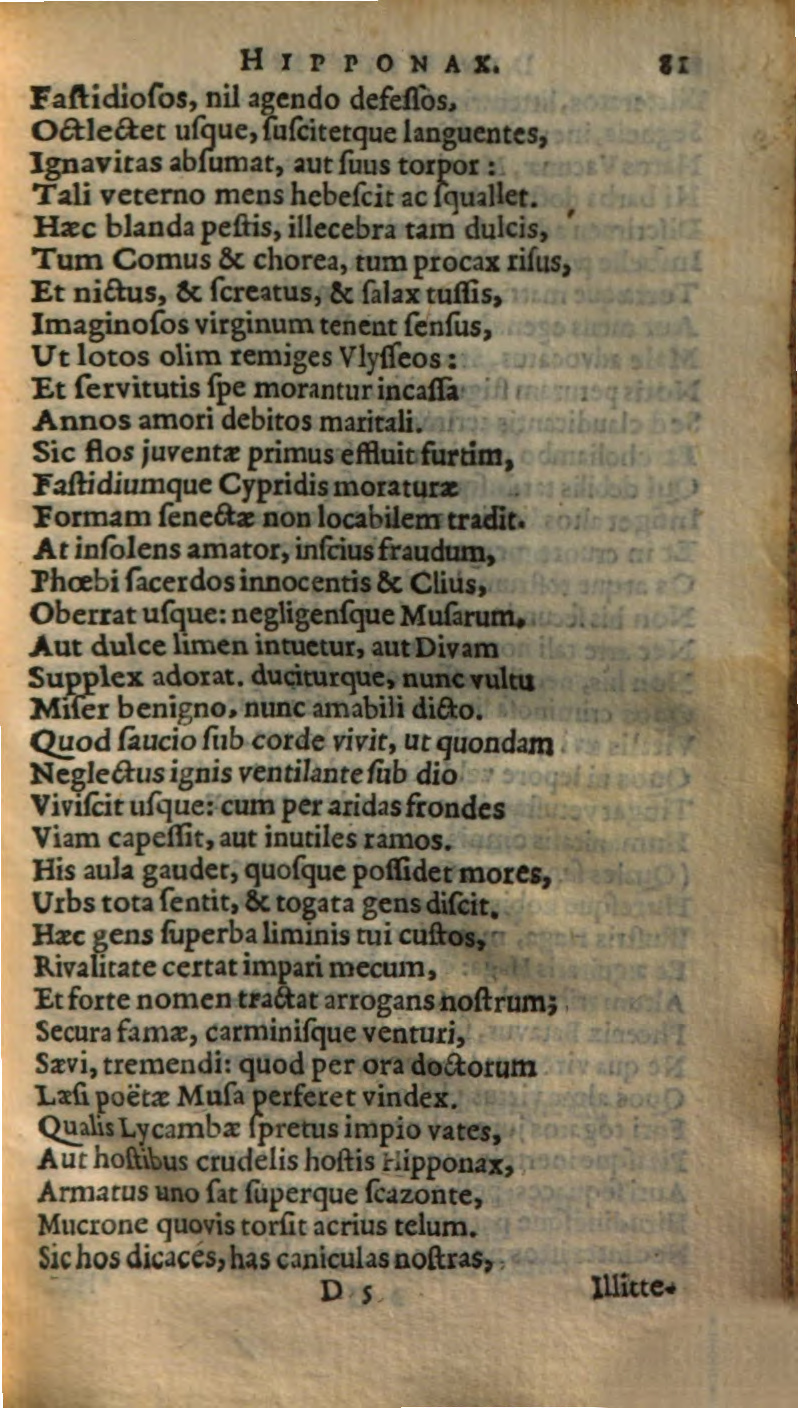 HIPPONAX. 81
Faſtidioſos, nil agendo defeſſos,
Octlectet uſque, ſuſcitetque languentes,
Ignavitas abſumat, aut ſuus torpor:
Tali veterno mens hebeſcit ac ſquallet.
Hæc blanda peſtis, illecebra tam dulcis,
Tum Comus & chorea, tum procax riſus,
Et nictus, & ſcreatus, & ſalax tuſſis,
Imaginoſos virginum tenent ſenſus,
Ut lotos olim remiges Vlyſſeos:
Et ſervitutis ſpe morantur incaſſa
Annos amori debitos maritali.
Sic flos juventæ primus effluit furtim,
Faſtidiumque Cypridis moraturæ
Formam ſenectæ non locabilem tradit.
At inſolens amator, inſcius fraudum,
Phœbi ſacerdos innocentis & Clius,
Oberrat uſque: negligenſque Muſarum,
Aut dulce limen intuetur, aut Divam
Supplex adorat. duciturque, nunc vultu
Miſer benigno, nunc amabili dicto.
Quod ſaucio ſub corde vivit, ut quondam
Neglectus ignis ventilante ſub dio
Viviſcit uſque: cum per aridas frondes
Viam capeſſit, aut inutiles ramos.
His aula gaudet, quoſque poſſidet mores,
Urbs tota ſentit, & togata gens diſcit.
Hæc gens ſuperba liminis tui cuſtos,
Rivalitate certat impari mecum,
Et forte nomen tractat arrogans noſtrum;
Secura famæ, carminiſque venturi,
Sævi, tremendi: quod per ora doctorum
Læſi poëtæ Muſa perferet vindex.
Qualis Lycambæ ſpretus impio vates,
Aut hoſtibus crudelis hoſtis Hipponax,
Armatus uno ſat ſuperque ſcazonte,
Mucrone quovis torſit acrius telum.
Sic hos dicaces, has caniculas noſtras,
D 5 Illitte-